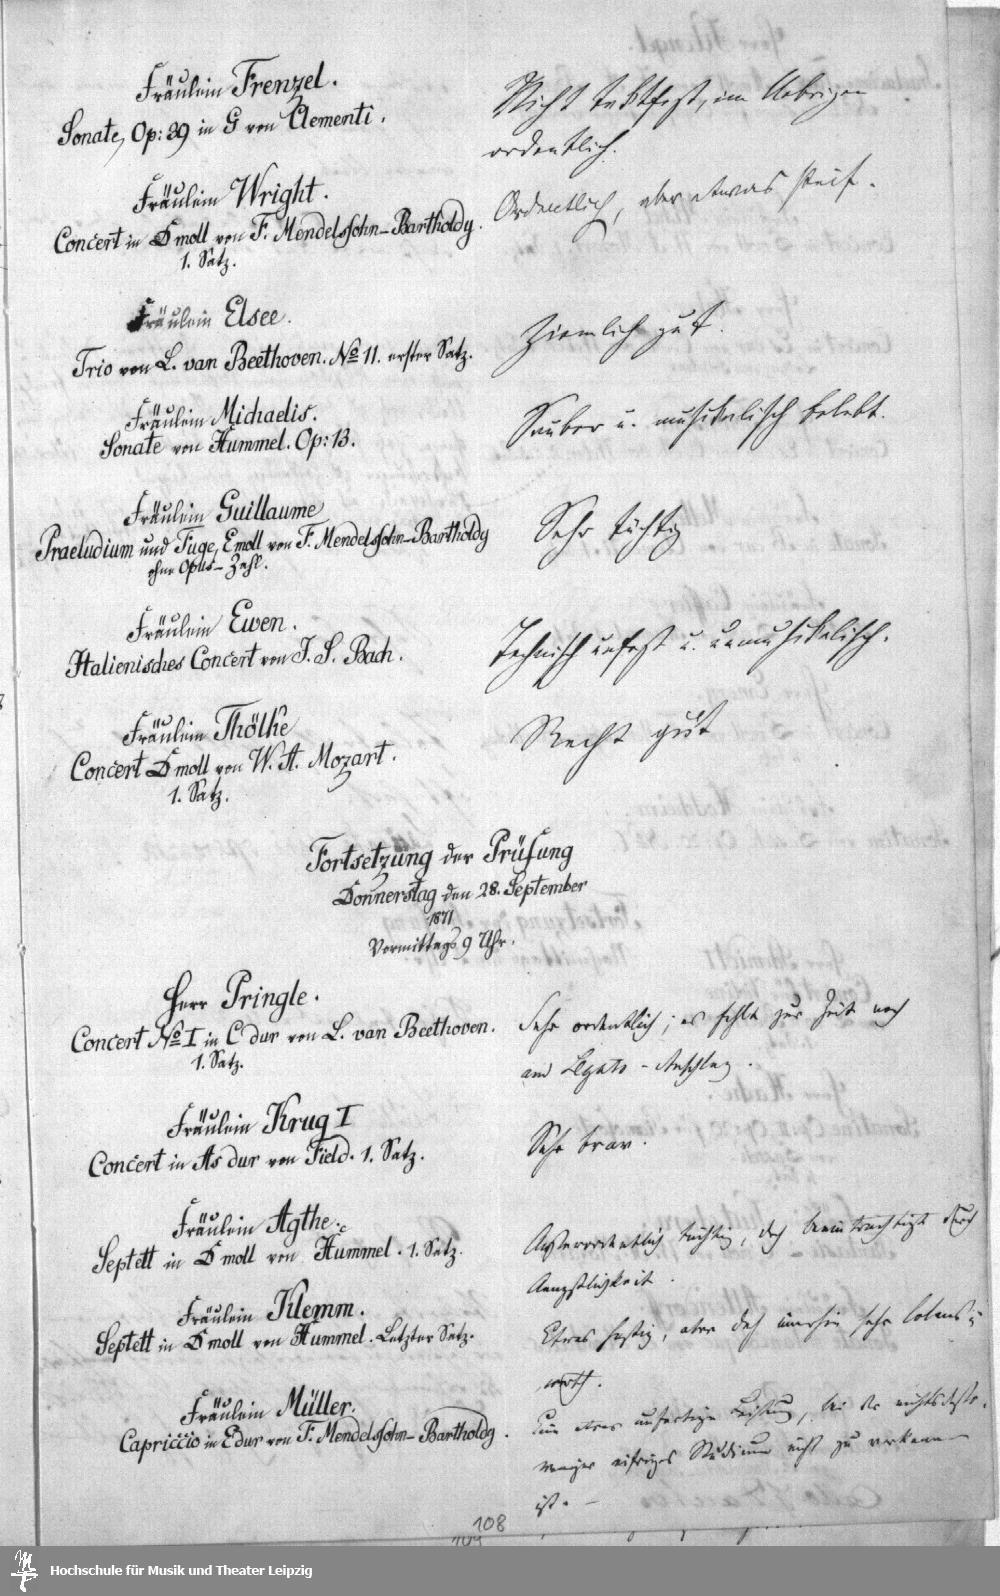 Fräulein Frenzel.
Sonate, Op: 39 in G von Clementi.
Nicht taktfest, im Uebrigen
ordentlich.
Fräulein Wright.
Concert in Dmoll von F. Mendelssohn-Bartholdy.
1. Satz.
Ordentlich, aber etwas steif.
Fräulein Elsee.
Trio von L. van Beethoven. No 11. erster Satz.
Ziemlich gut.
Fräulein Michaelis.
Sonate von Hummel. Op: 13.
Sauber u. musikalisch belebt.
Fräulein Guillaume
Praeludium und Fuge, Emoll von F. Mendelssohn-Bartholdy
ohne Opus-Zahl.
Sehr tüchtig
Fräulein Ewen.
Italienisches Concert von J. S. Bach.
Technisch unfest u. unmusikalisch.
Fräulein Thölke
Concert Dmoll von W. A. Mozart.
1. Satz.
Recht gut
Fortsetzung der Prüfung
Donnerstag den 28. September
1871
Vormittags 9 Uhr.
Herr Pringle.
Concert No I in C dur von L. van Beethoven.
1. Satz.
Sehr ordentlich; es fehlt zur Zeit noch
am Legato-Anschlag.
Fräulein Krug I
Concert in As dur von Field. 1. Satz.
Sehr brav.
Fräulein Agthe.
Septett in D moll von Hummel. 1. Satz.
Außerordentlich tüchtig, doch beeinträchtigt durch
Aengstlichkeit.
Fräulein Klemm.
Septett in D moll von Hummel. Letzter Satz.
Etwas hastig, aber doch immerhin sehr lobens-
werth.
Fräulein Müller.
Capriccio in Edur von F. Mendelssohn-Bartholdy.
Eine etwas unfertige Leistung, bei der nichtsdesto-
weniger eifriges Studium nicht zu verkennen
ist. -
108
109
Hochschule für Musik und Theater Leipzig